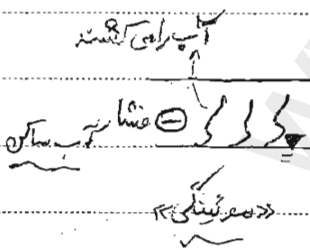 آب را می کشند
فشار ⊖
آب ساکن
«مویینگی»